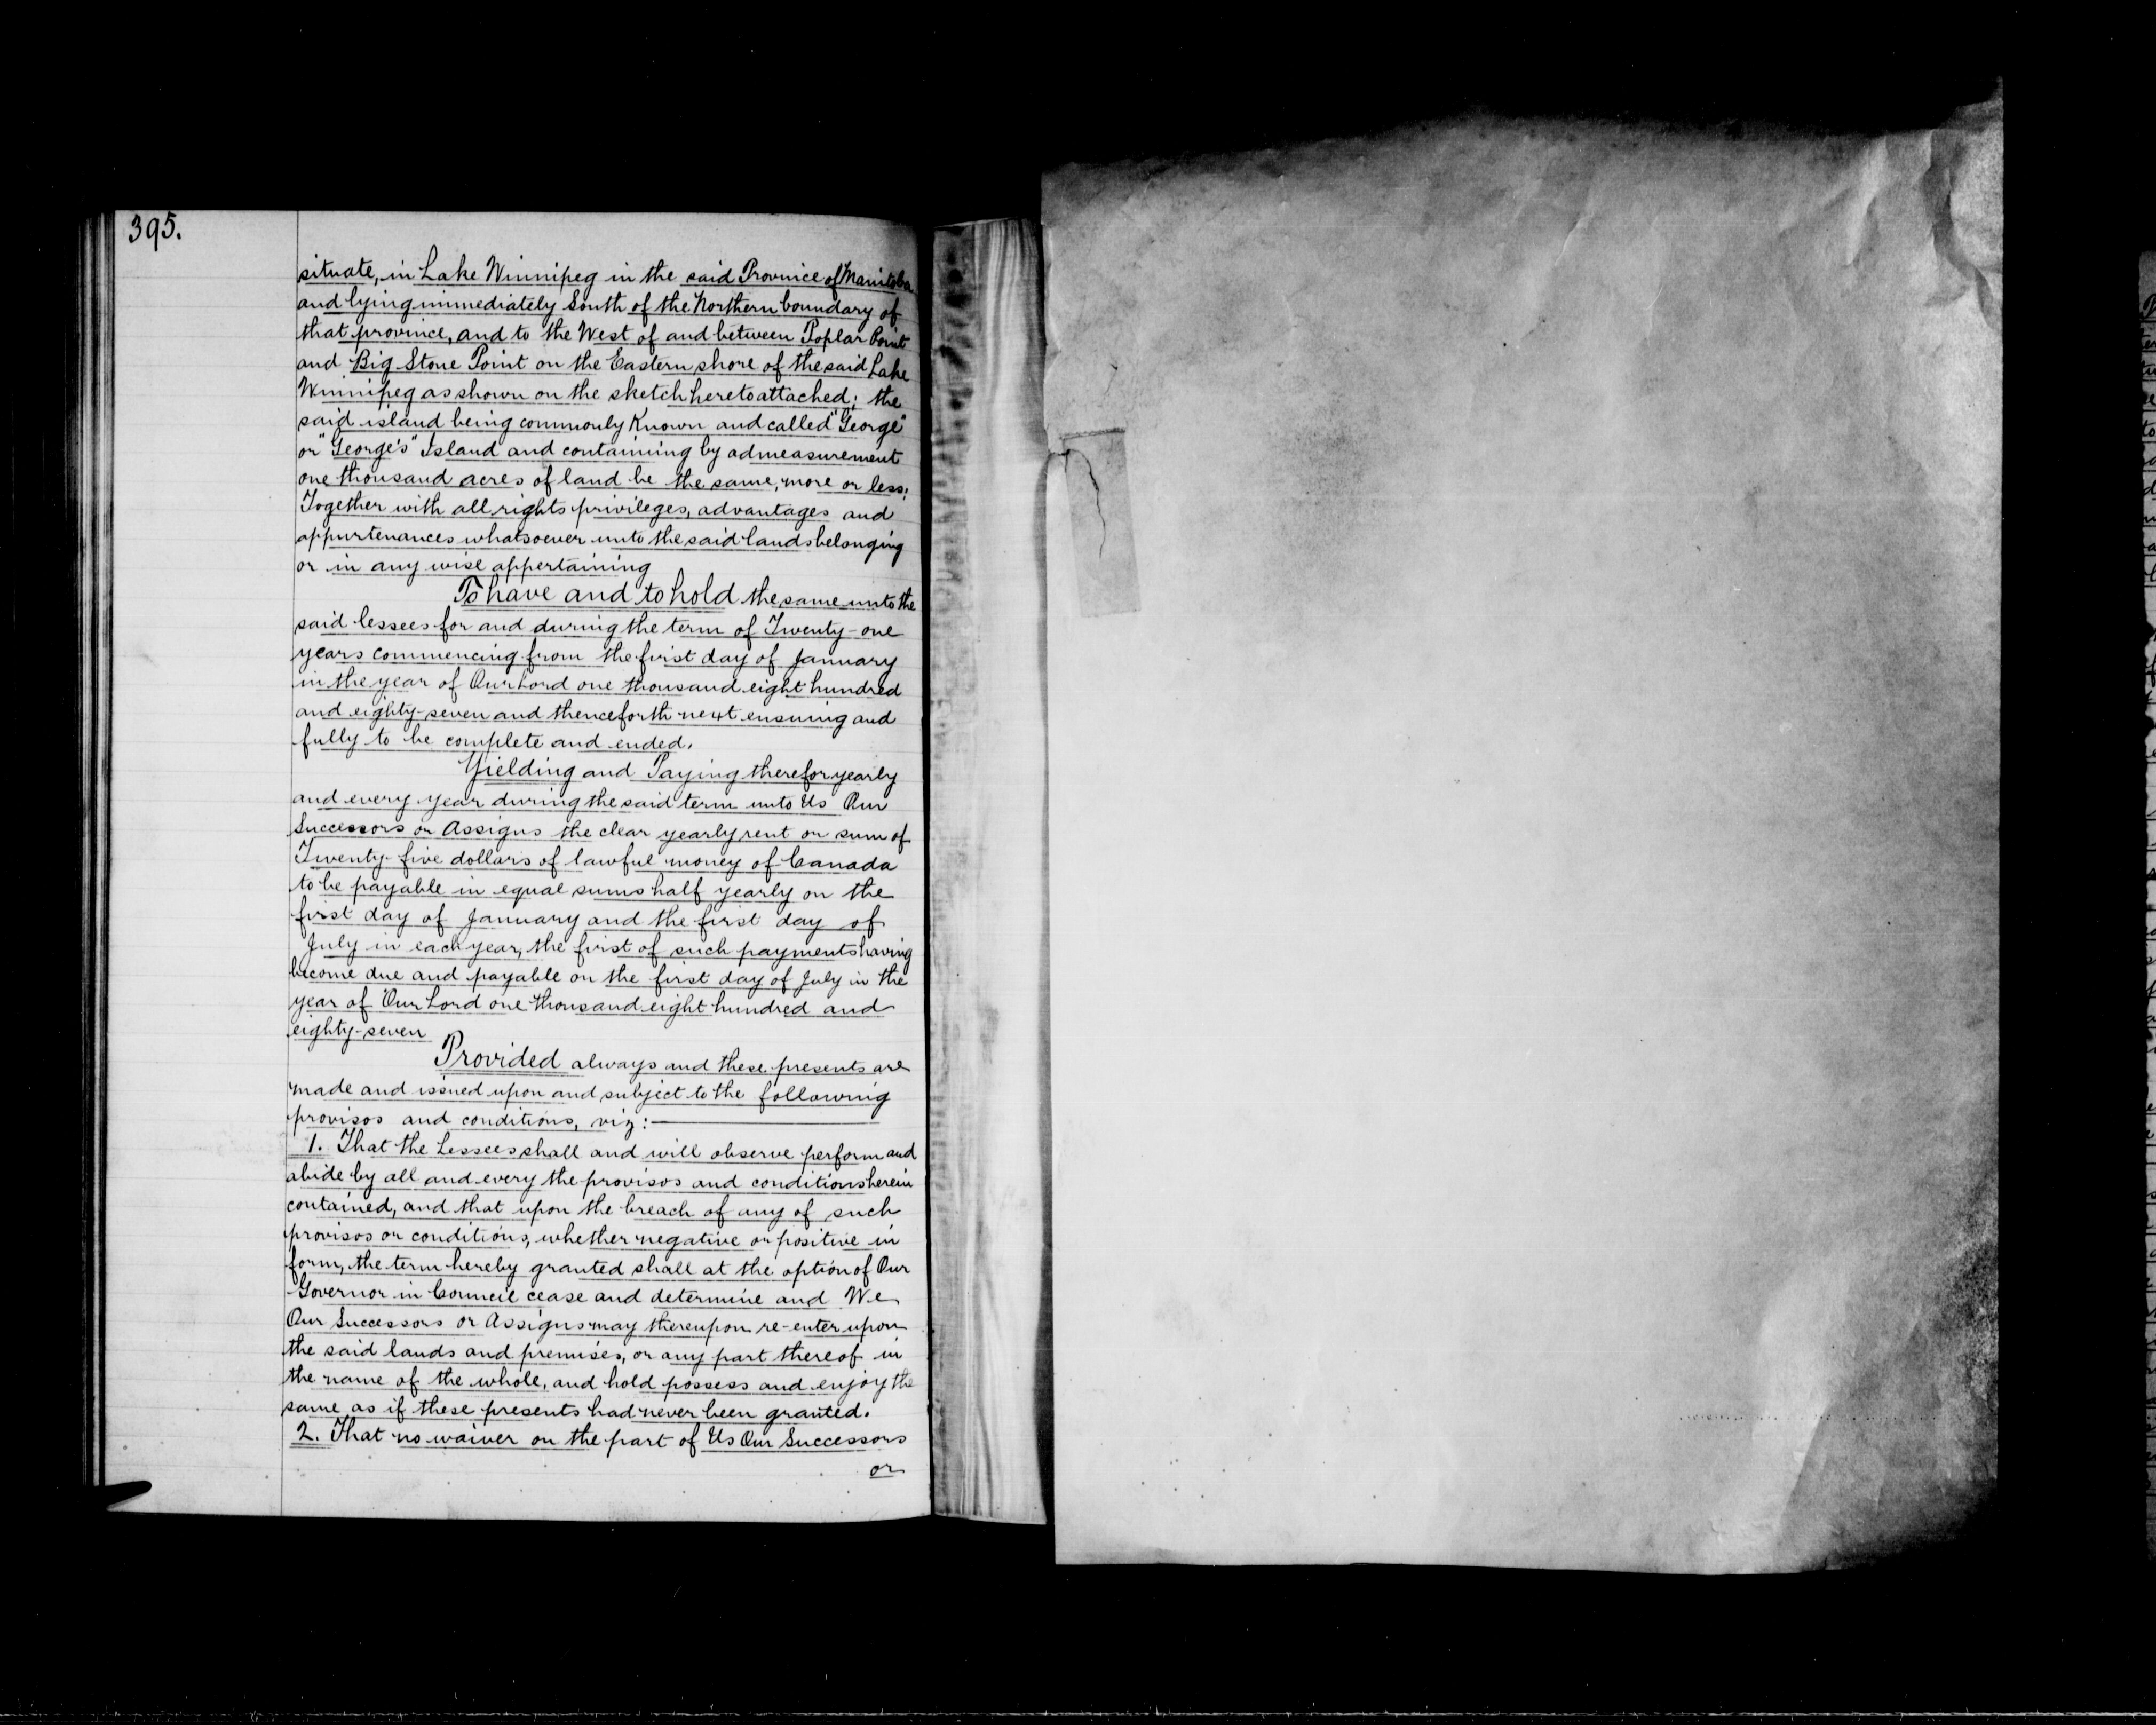 395.
situate, in Lake Winnipeg in the said Province of Manitoba
and lying immediately South of the Northern boundary of
that province, and to the West of and between Poplar Point
and Big Stone Point on the Eastern shore of the said Lake
Winnipeg as shown on the sketch hereto attached; the
said island being commonly known and called "George"
or "George's" Island and containing by admeasurement
one thousand acres of land be the same, more or less;
Together with all rights privileges, advantages and
appurtenances whatsoever unto the said lands belonging
or in any wise appertaining
To have and to hold the same unto the
said lessees for and during the term of Twenty-one
years commencing from the first day of January
in the year of Our Lord one thousand eight hundred
and eighty-seven and thenceforth next ensuing and
fully to be complete and ended.
Yielding and Paying therefor yearly
and every year during the said term unto Us Our
Successors or Assigns the clear yearly rent or sum of
Twenty-five dollars of lawful money of Canada
to be payable in equal sums half yearly on the
first day of January and the first day of
July in each year, the first of such payments having
become due and payable on the first day of July in the
year of Our Lord one thousand eight hundred and
eighty-seven
Provided always and these presents are
made and issued upon and subject to the following
provisos and conditions, viz:—
1. That the Lessees shall and will observe perform and
abide by all and every the provisos and conditions herein
contained, and that upon the breach of any of such
provisos or conditions, whether negative or positive in
form, the term hereby granted shall at the option of Our
Governor in Council cease and determine and We
Our Successors or Assigns may thereupon re-enter upon
the said lands and premises, or any part thereof in
the name of the whole, and hold possess and enjoy the
same as if these presents had never been granted.
2. That no waiver on the part of Us Our Successors
or